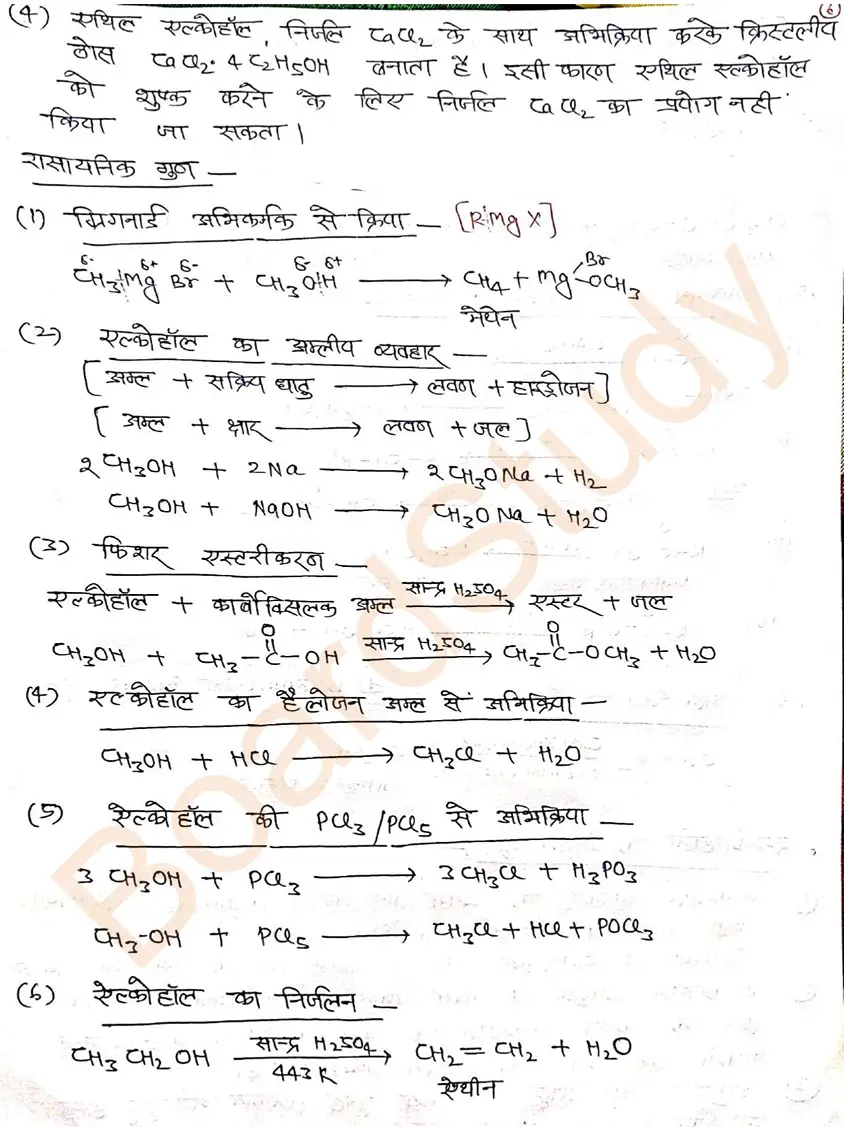 (6)
(4) एथिल एल्कोहॉल, निर्जल CaCl2 के साथ अभिक्रिया करके क्रिस्टलीय
ठोस CaCl2·4C2H5OH बनाता है। इसी कारण एथिल एल्कोहॉल
को शुष्क करने के लिए निर्जल CaCl2 का प्रयोग नहीं
किया जा सकता।
रासायनिक गुण —
(1) ग्रिगनार्ड अभिकर्मक से क्रिया — [R Mg X]
δ- δ+ δ- δ- δ+ Br
CH3 Mg Br + CH3OH ⟶ CH4 + Mg OCH3
मेथेन
(2) एल्कोहॉल का अम्लीय व्यवहार —
[अम्ल + सक्रिय धातु ⟶ लवण + हाइड्रोजन]
[अम्ल + क्षार ⟶ लवण + जल]
2CH3OH + 2Na ⟶ 2CH3ONa + H2
CH3OH + NaOH ⟶ CH3ONa + H2O
(3) फिशर एस्टरीकरण —
एल्कोहॉल + कार्बोक्सिलिक अम्ल सान्द्र H2SO4 ⟶ एस्टर + जल
O O
CH3OH + CH3-C-OH सान्द्र H2SO4 ⟶ CH3-C-OCH3 + H2O
(4) एल्कोहॉल का हैलोजन अम्ल से अभिक्रिया —
CH3OH + HCl ⟶ CH3Cl + H2O
(5) ऐल्कोहॉल की PCl3/PCl5 से अभिक्रिया —
3 CH3OH + PCl3 ⟶ 3CH3Cl + H3PO3
CH3-OH + PCl5 ⟶ CH3Cl + HCl + POCl3
(6) ऐल्कोहॉल का निर्जलन —
CH3CH2OH सान्द्र H2SO4 ⟶ CH2=CH2 + H2O
443K
ऐथीन
BoardStudy